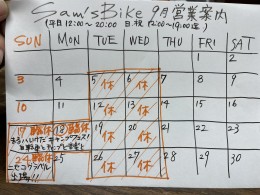 Sam'sBike 9月営業案内
(平日12:00~20:00 日祝12:00~19:00迄)
SUN MON TUE WED THU FRI SAT
1 2
3 4 5 休 6 休 7 8 9
10 11 12 休 13 休 14 15 16
17 臨休 18 臨休 19 休 20 休 21 22 23
24 臨休 25 26 休 27 休 28 29 30
出場!!